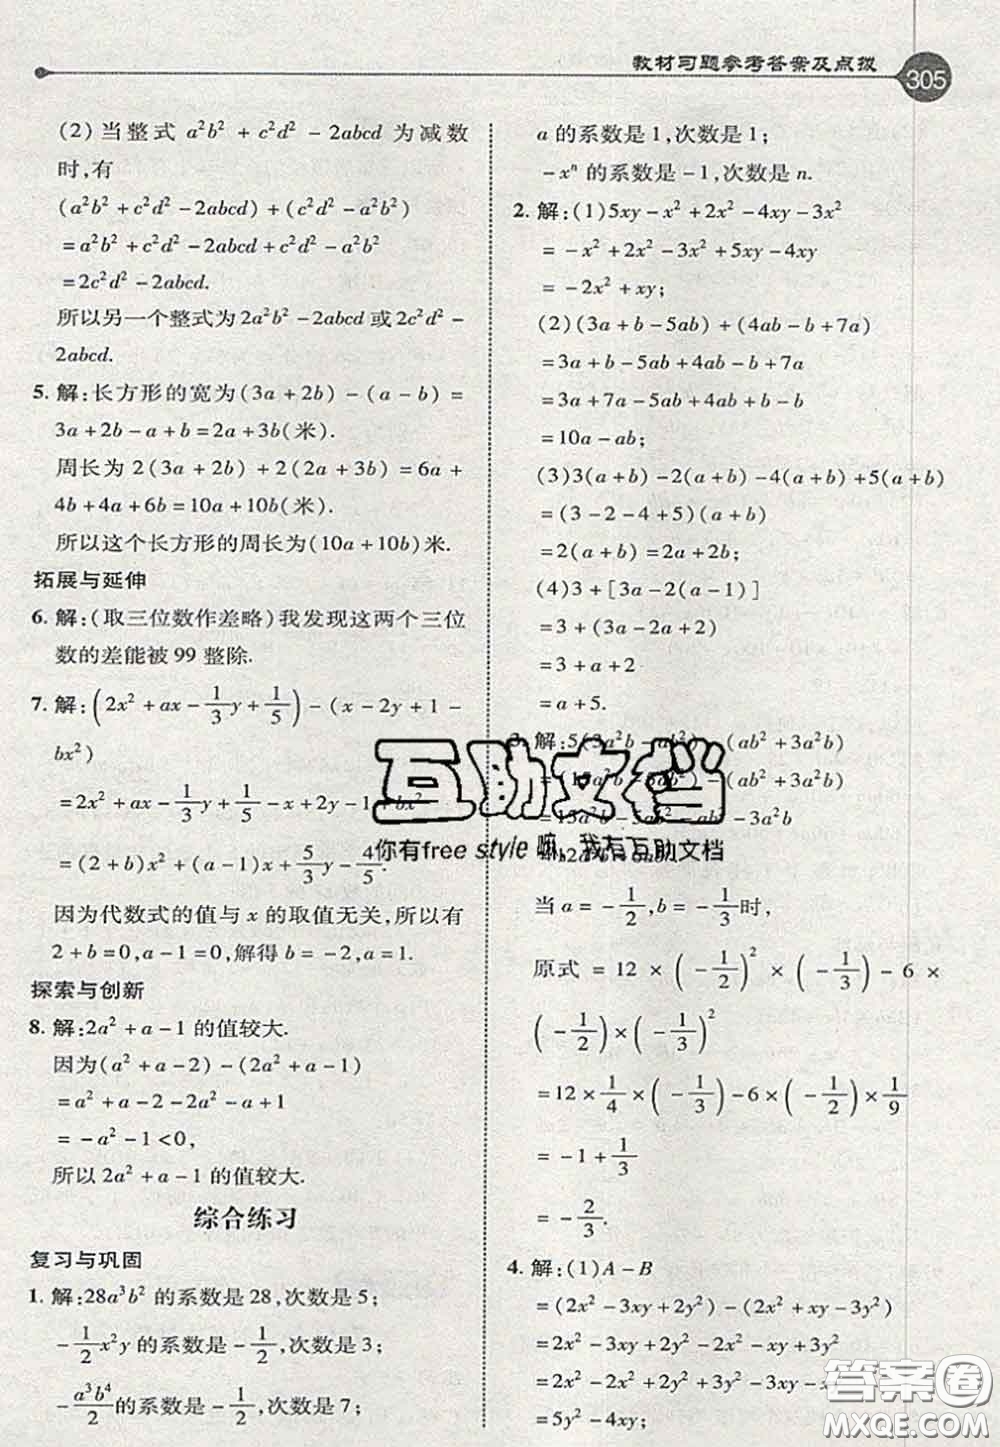 教材习题参考答案及点拨
305
(2)当整式 a²b² + c²d² - 2abcd 为减数
时,有
(a²b² + c²d² - 2abcd) + (c²d² - a²b²)
= a²b² + c²d² - 2abcd + c²d² - a²b²
= 2c²d² - 2abcd.
所以另一个整式为 2a²b² - 2abcd 或 2c²d² -
2abcd.
5. 解:长方形的宽为(3a + 2b) - (a - b) =
3a + 2b - a + b = 2a + 3b(米).
周长为 2(3a + 2b) + 2(2a + 3b) = 6a +
4b + 4a + 6b = 10a + 10b(米).
所以这个长方形的周长为(10a + 10b)米.
拓展与延伸
6. 解:(取三位数作差略)我发现这两个三位
数的差能被 99 整除.
7. 解:(2x² + ax - 1/3 y + 1/5) - (x - 2y + 1 -
bx²)
= 2x² + ax - 1/3 y + 1/5 - x + 2y - 1 + bx²
= (2 + b)x² + (a - 1)x + 5/3 y - 4/5.
因为代数式的值与 x 的取值无关,所以有
2 + b = 0, a - 1 = 0, 解得 b = -2, a = 1.
探索与创新
8. 解:2a² + a - 1 的值较大.
因为(a² + a - 2) - (2a² + a - 1)
= a² + a - 2 - 2a² - a + 1
= -a² - 1 < 0,
所以 2a² + a - 1 的值较大.
综合练习
复习与巩固
1. 解:28a³b² 的系数是 28,次数是 5;
-1/2 x²y 的系数是 -1/2,次数是 3;
-a³b⁴/2 的系数是 -1/2,次数是 7;
a 的系数是 1,次数是 1;
-xⁿ 的系数是 -1,次数是 n.
2. 解:(1)5xy - x² + 2x² - 4xy - 3x²
= -x² + 2x² - 3x² + 5xy - 4xy
= -2x² + xy;
(2)(3a + b - 5ab) + (4ab - b + 7a)
= 3a + b - 5ab + 4ab - b + 7a
= 3a + 7a - 5ab + 4ab + b - b
= 10a - ab;
(3)3(a + b) - 2(a + b) - 4(a + b) + 5(a + b)
= (3 - 2 - 4 + 5)(a + b)
= 2(a + b) = 2a + 2b;
(4)3 + [3a - 2(a - 1)]
= 3 + (3a - 2a + 2)
= 3 + a + 2
= a + 5.
3. 解:5(3a²b - ab²) - (ab² + 3a²b)
= (15a²b - 5ab²) - (ab² + 3a²b)
= 15a²b - 5ab² - ab² - 3a²b
互助文档
你有free style 嘛,我有互助文档
当 a = -1/2, b = -1/3 时,
原式 = 12 × (-1/2)² × (-1/3) - 6 ×
(-1/2) × (-1/3)²
= 12 × 1/4 × (-1/3) - 6 × (-1/2) × 1/9
= -1 + 1/3
= -2/3.
4. 解:(1)A - B
= (2x² - 3xy + 2y²) - (2x² + xy - 3y²)
= 2x² - 3xy + 2y² - 2x² - xy + 3y²
= 2x² - 2x² + 2y² + 3y² - 3xy - xy
= 5y² - 4xy;
答案圈
MXQE.COM